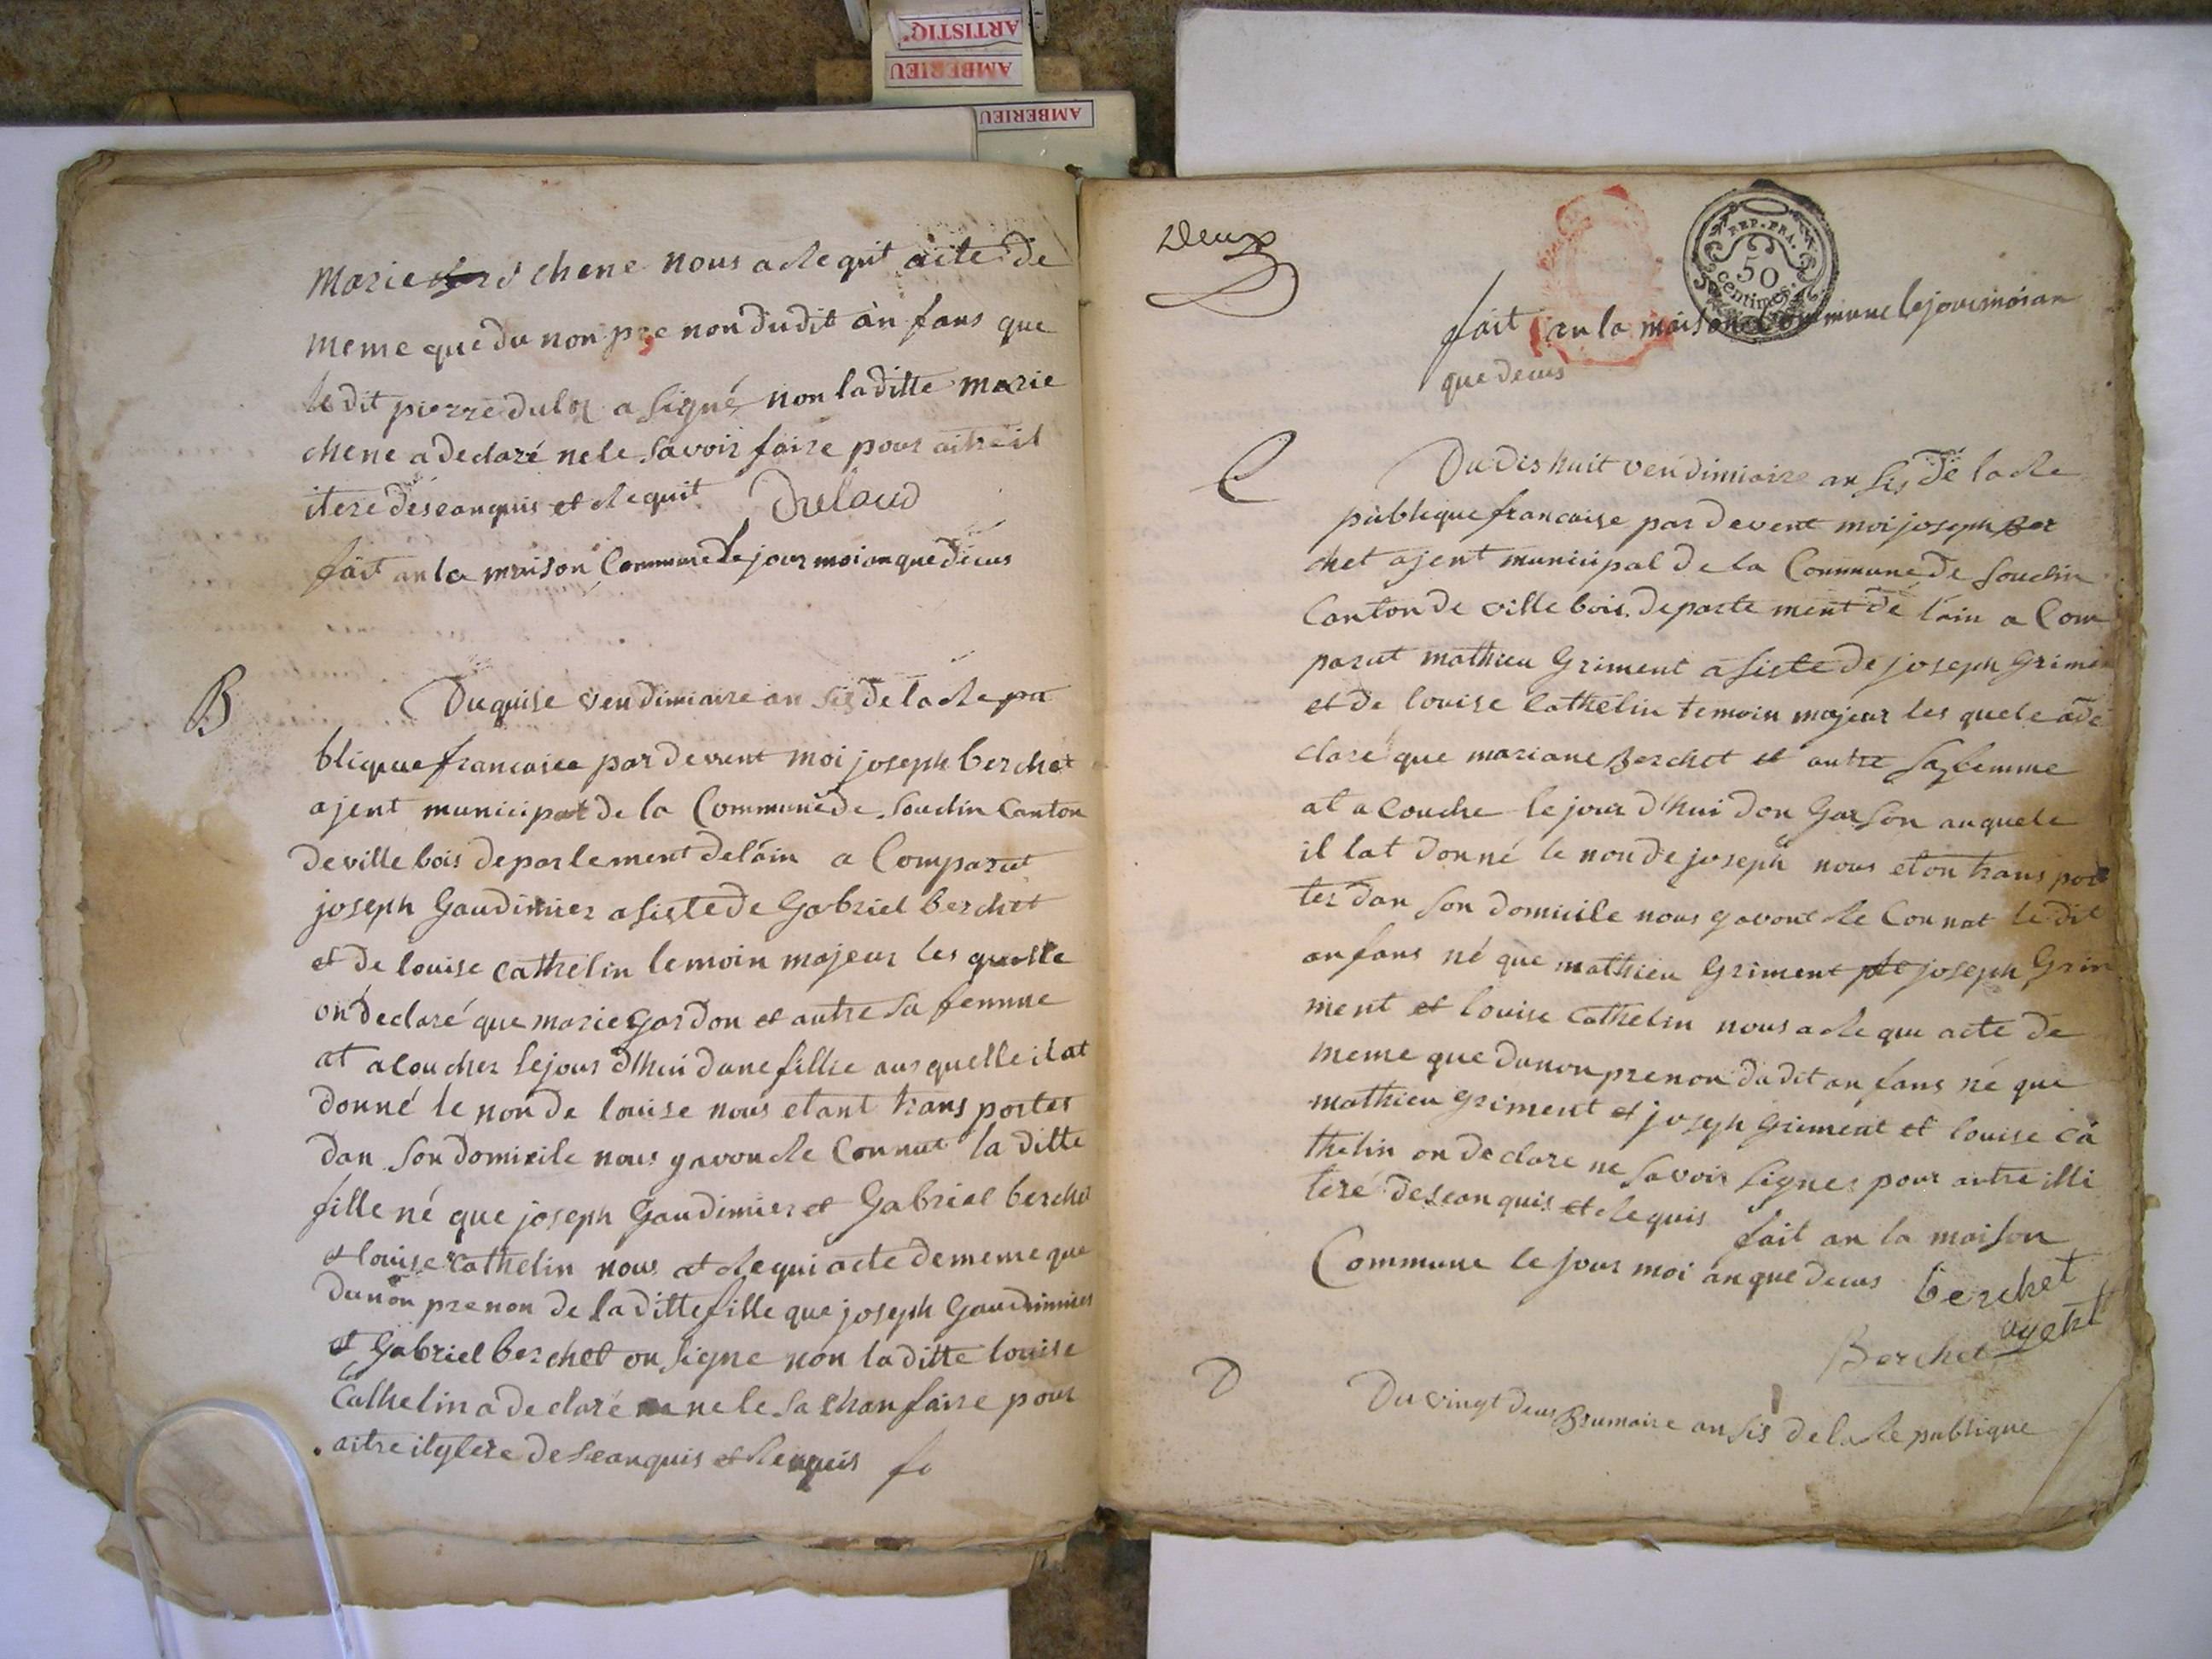 ARTISTIQ'
AMBERIEU
AMBERIEU
marie chene nous a Requit acte de
meme que du non prenon dudit an fans que
le dit pierre dulo a signé non la ditte marie
chene a declaré ne le savoir faire pour aitre il
itere deseanquis et Requit Dulaud
fait an la maison Commune le jour moi an que decus
B
Du quise vendimiaire an sis de la Repu
blique francaise par devent moi joseph berchet
ajent municipal de la Commune de Soudin Canton
de ville bois departement de lain a Comparut
joseph Gaudimier asiste de Gabriel berchet
et de louise cathelin temoin majeur les quelle
on declaré que marie gardon et autre sa femme
at acoucher le jour dhui dune fillie aus quelle il at
donné le non de louise nous etant trans portes
dan son domicile nous y avon Re Connut la ditte
fille né que joseph Gaudimier et Gabriel berchet
et louise cathelin nous at Requi acte de meme que
du non prenon de la ditte fille que joseph Gaudimier
et Gabriel berchet on signe non la ditte louise
Cathelin a declaré ne le sachan faire pour
aitre itylere de seanquis et Requis fa
Deux
REP. FRA.
50
centimes.
fait an la maison Commune le jour moi an
que decus
C
Du dishuit vendimiaire an sis de la Re
publique francaise par devent moi joseph Ber
chet ajent municipal de la Commune de Soudin
Canton de ville bois departement de lain a Com
parut mathieu Griment asiste de joseph Grimen
et de louise Cathelin temoin majeur les quele a de
claré que mariane Berchet et autre sa femme
at a couche le jour dhui don Garson auquele
il lat donné le non de joseph nous eton trans por
ter dan son domicile nous y avont Re Connat le dit
anfans né que mathieu Griment joseph Grin
ment et louise Cathelin nous a Requ acte de
meme que du non prenon du dit an fans né que
mathieu griment et joseph Griment et louise ca
thelin on declare ne savoir signer pour aitre illi
teré deseanquis et Requis fait an la maison
Commune le jour moi an que decus berchet
agent
Berchet
D
Du vingt deus Brumaire an sis de la Republique